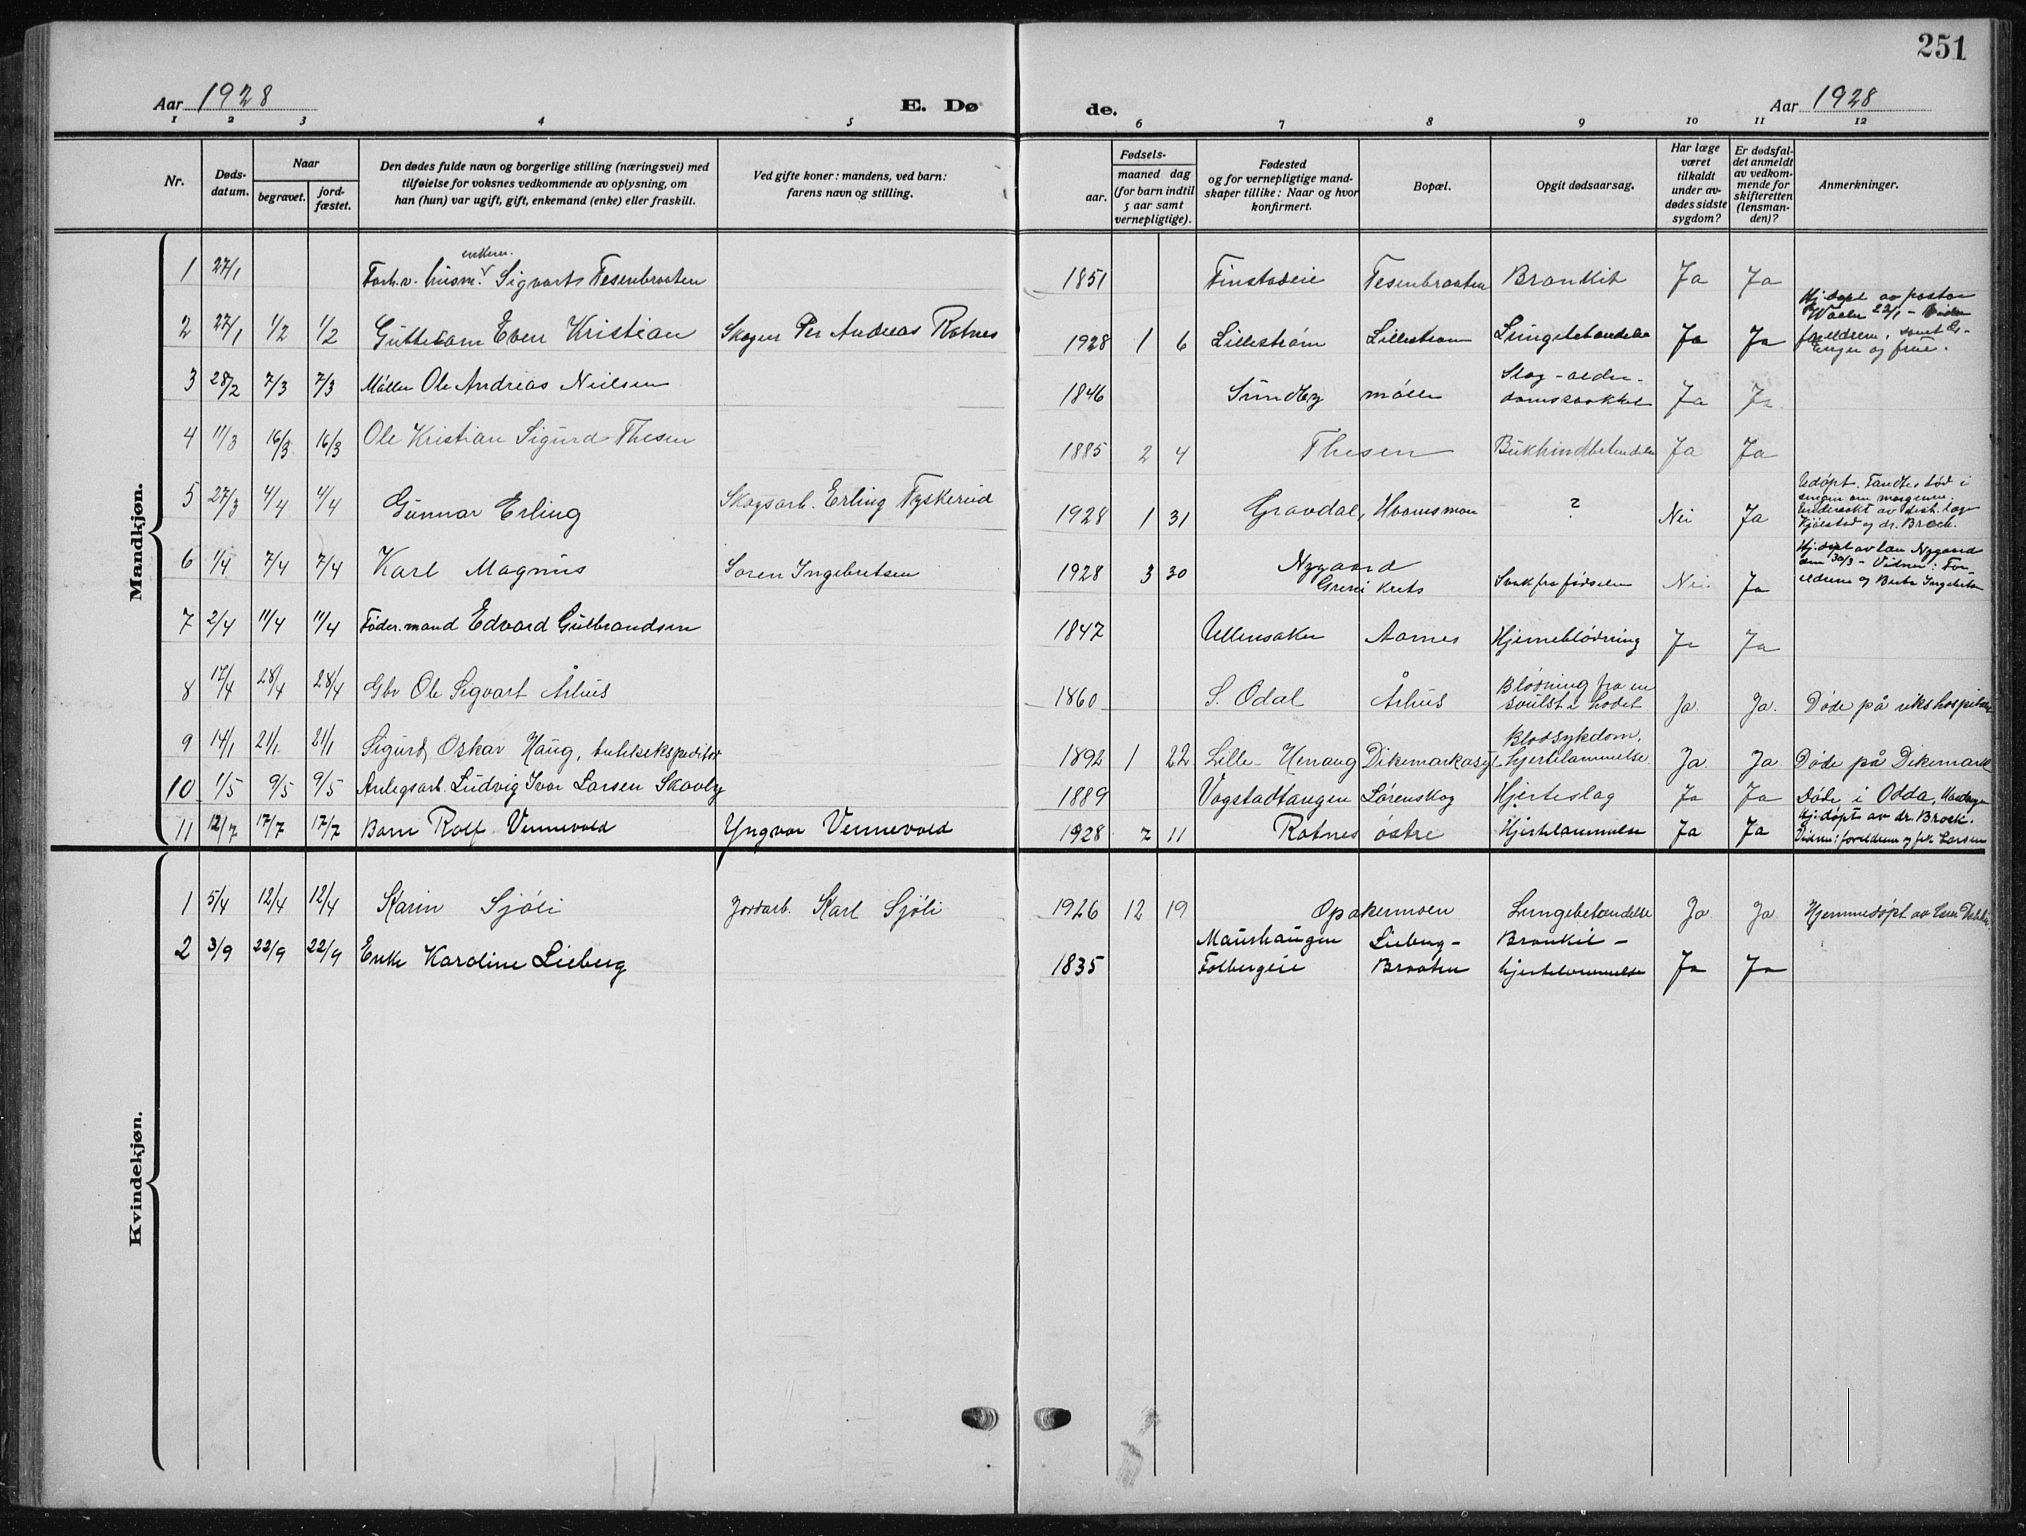 251
Aar 1928 E. Dø de. Aar 1928
1 2 3 4 5 6 7 8 9 10 11 12
Nr.
Døds-
datum.
Naar
begravet.
jord-
fæstet.
Den dødes fulde navn og borgerlige stilling (næringsvei) med
tilføielse for voksnes vedkommende av oplysning, om
han (hun) var ugift, gift, enkemand (enke) eller fraskilt.
Ved gifte koner: mandens, ved barn:
farens navn og stilling.
Fødsels-
aar.
maaned dag
(for barn indtil
5 aar samt
vernepligtige).
Fødested
og for vernepligtige mand-
skaper tillike: Naar og hvor
konfirmert.
Bopæl.
Opgit dødsaarsag.
Har læge
været
tilkaldt
under av-
dødes sidste
sygdom?
Er dødsfal-
det anmeldt
av vedkom-
mende for
skifteretten
(lensman-
den)?
Anmerkninger.
Mandkjøn.
1 27/1 Forh.v. husm. Sigvart Tesenbraaten 1851 Finstadeie Tesenbraaten Bronkit Ja Ja
2 27/1 1/2 1/2 Guttebarn Even Kristian Skogen Per Andreas Rotnes 1928 1 6 Lillestrøm Lillestrøm Lungebetændelse Ja Ja Hj.døpt av pastor 22/1 - forældrene, samt og frue.
3 28/2 7/3 7/3 Møller Ole Andreas Nielsen 1846 Sundby mølle Slag - alder-
domssvakkel Ja Ja
4 11/3 16/3 16/3 Ole Kristian Sigurd Thesen 1885 2 4 Thesen Bukhindebetændelse Ja Ja
5 27/3 4/4 4/4 Gunnar Erling Skogsarb. Erling Tyskerud 1928 1 31 Gravdal, Hvamsmoen ? Nei Ja Udøpt. Fandtes død i
sengen om morgenen.
Undersøkt av dist.læge
Kjølstad og dr. Brock.
6 1/4 7/4 7/4 Karl Magnus Søren Ingebretsen 1928 3 30 Nygaard
Greni krets Svak fra fødselen Nei. Ja Hj.døpt av Nygaard
30/3 - Vidner: For-
ældrene og Ingebretsen
7 2/4 11/4 11/4 Føder.mand Edvard Gulbrandsen 1847 Ullensaker Aarnes Hjerneblødning Ja Ja
8 17/4 28/4 28/4 Gbr Ole Sigvart Århus 1860 S. Odal Århus Blødning fra en
svulst i hodet Ja. Ja. Døde på rikshospitalet
9 14/1 21/1. 21/1 Sigurd Oskar Haug, butikekspeditør 1892 1 22 Lille-Herraug Dikemark asyl Blodsykdom,
hjertelammelse Ja. Ja. Døde på Dikemark
10 1/5 9/5 9/5 Anlegsarb. Ludvig Ivar Larsen Skovly 1889 Vogstadtangen Lørenskog Hjerteslag Ja Ja Døde i Odda, Hardanger
11 12/7 17/7 17/7 Barn Rolf Vennevold Yngvar Vennevold 1928 7 11 Rotnes østre Hjertelammelse Ja Ja Hj.døpt av dr. Brock.
Vidner: foreldrene og frk Larsen
Kvindekjøn.
1 5/4 12/4 12/4 Karin Sjøli Jordarb. Karl Sjøli 1926 12 19 Opakermoen Lungebetændelse Ja Ja. Hjemmedøpt av
2 3/9 22/9 22/9 Enke Karoline Lieberg 1835 Maurhaugen
Folbergeie Lieberg-
Braaten Bronkit -
hjertelammelse Ja Ja